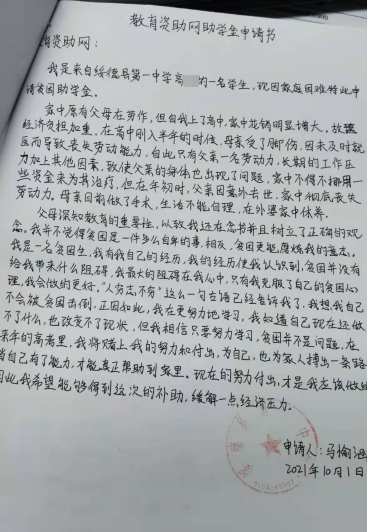 教育资助网助学金申请书
育资助网：
我是来自绥德县第一中学高 的一名学生，现因家庭困难特此申
请贫困助学金。
家中原有父母在劳作，但自我上了高中，家中花销明显增大，故
经济负担加重，在高中刚入半年的时候，母亲受了脚伤，因未及时就
医而导致丧失劳动能力，自此只有父亲一名劳动力，长期的工作压
力加上其他因素，致使父亲的身体也出现了问题，家中不得不挪用一
些资金来为其治疗，但在年初时，父亲因意外去世，家中彻底丧失
劳动力。母亲目前做了手术，生活不能自理，在外婆家中休养。
父母深知教育的重要性，以致我还在念书并且树立了正确的观
念。我并不觉得贫困是一件多么自卑的事，相反，贫困更能磨炼我的意志。
我是一名贫困生，我有我自己的经历，我的经历使我认识到，贫困并没有
给我带来什么阻碍，我最大的阻碍在我心中，只有我克服了自己的贫困心
理，我会做的更好。"人穷志不穷"这么一句古语已经告诉我了，我想，我自己
不会被贫困击倒，正因如此，我在更努力地学习，我知道自己现在还做
不了什么，也改变不了现状，但我相信只要努力学习，贫困并不是问题，在
来年的高考里，我将赌上我的努力和付出，为自己，也为家人搏出一条路
当自己有了能力，才能真正帮助到家里。现在的努力付出，才是我应该做的
因此，我希望能够得到这次的补助，缓解一点经济压力。
申请人：马愉
2021年10月1日